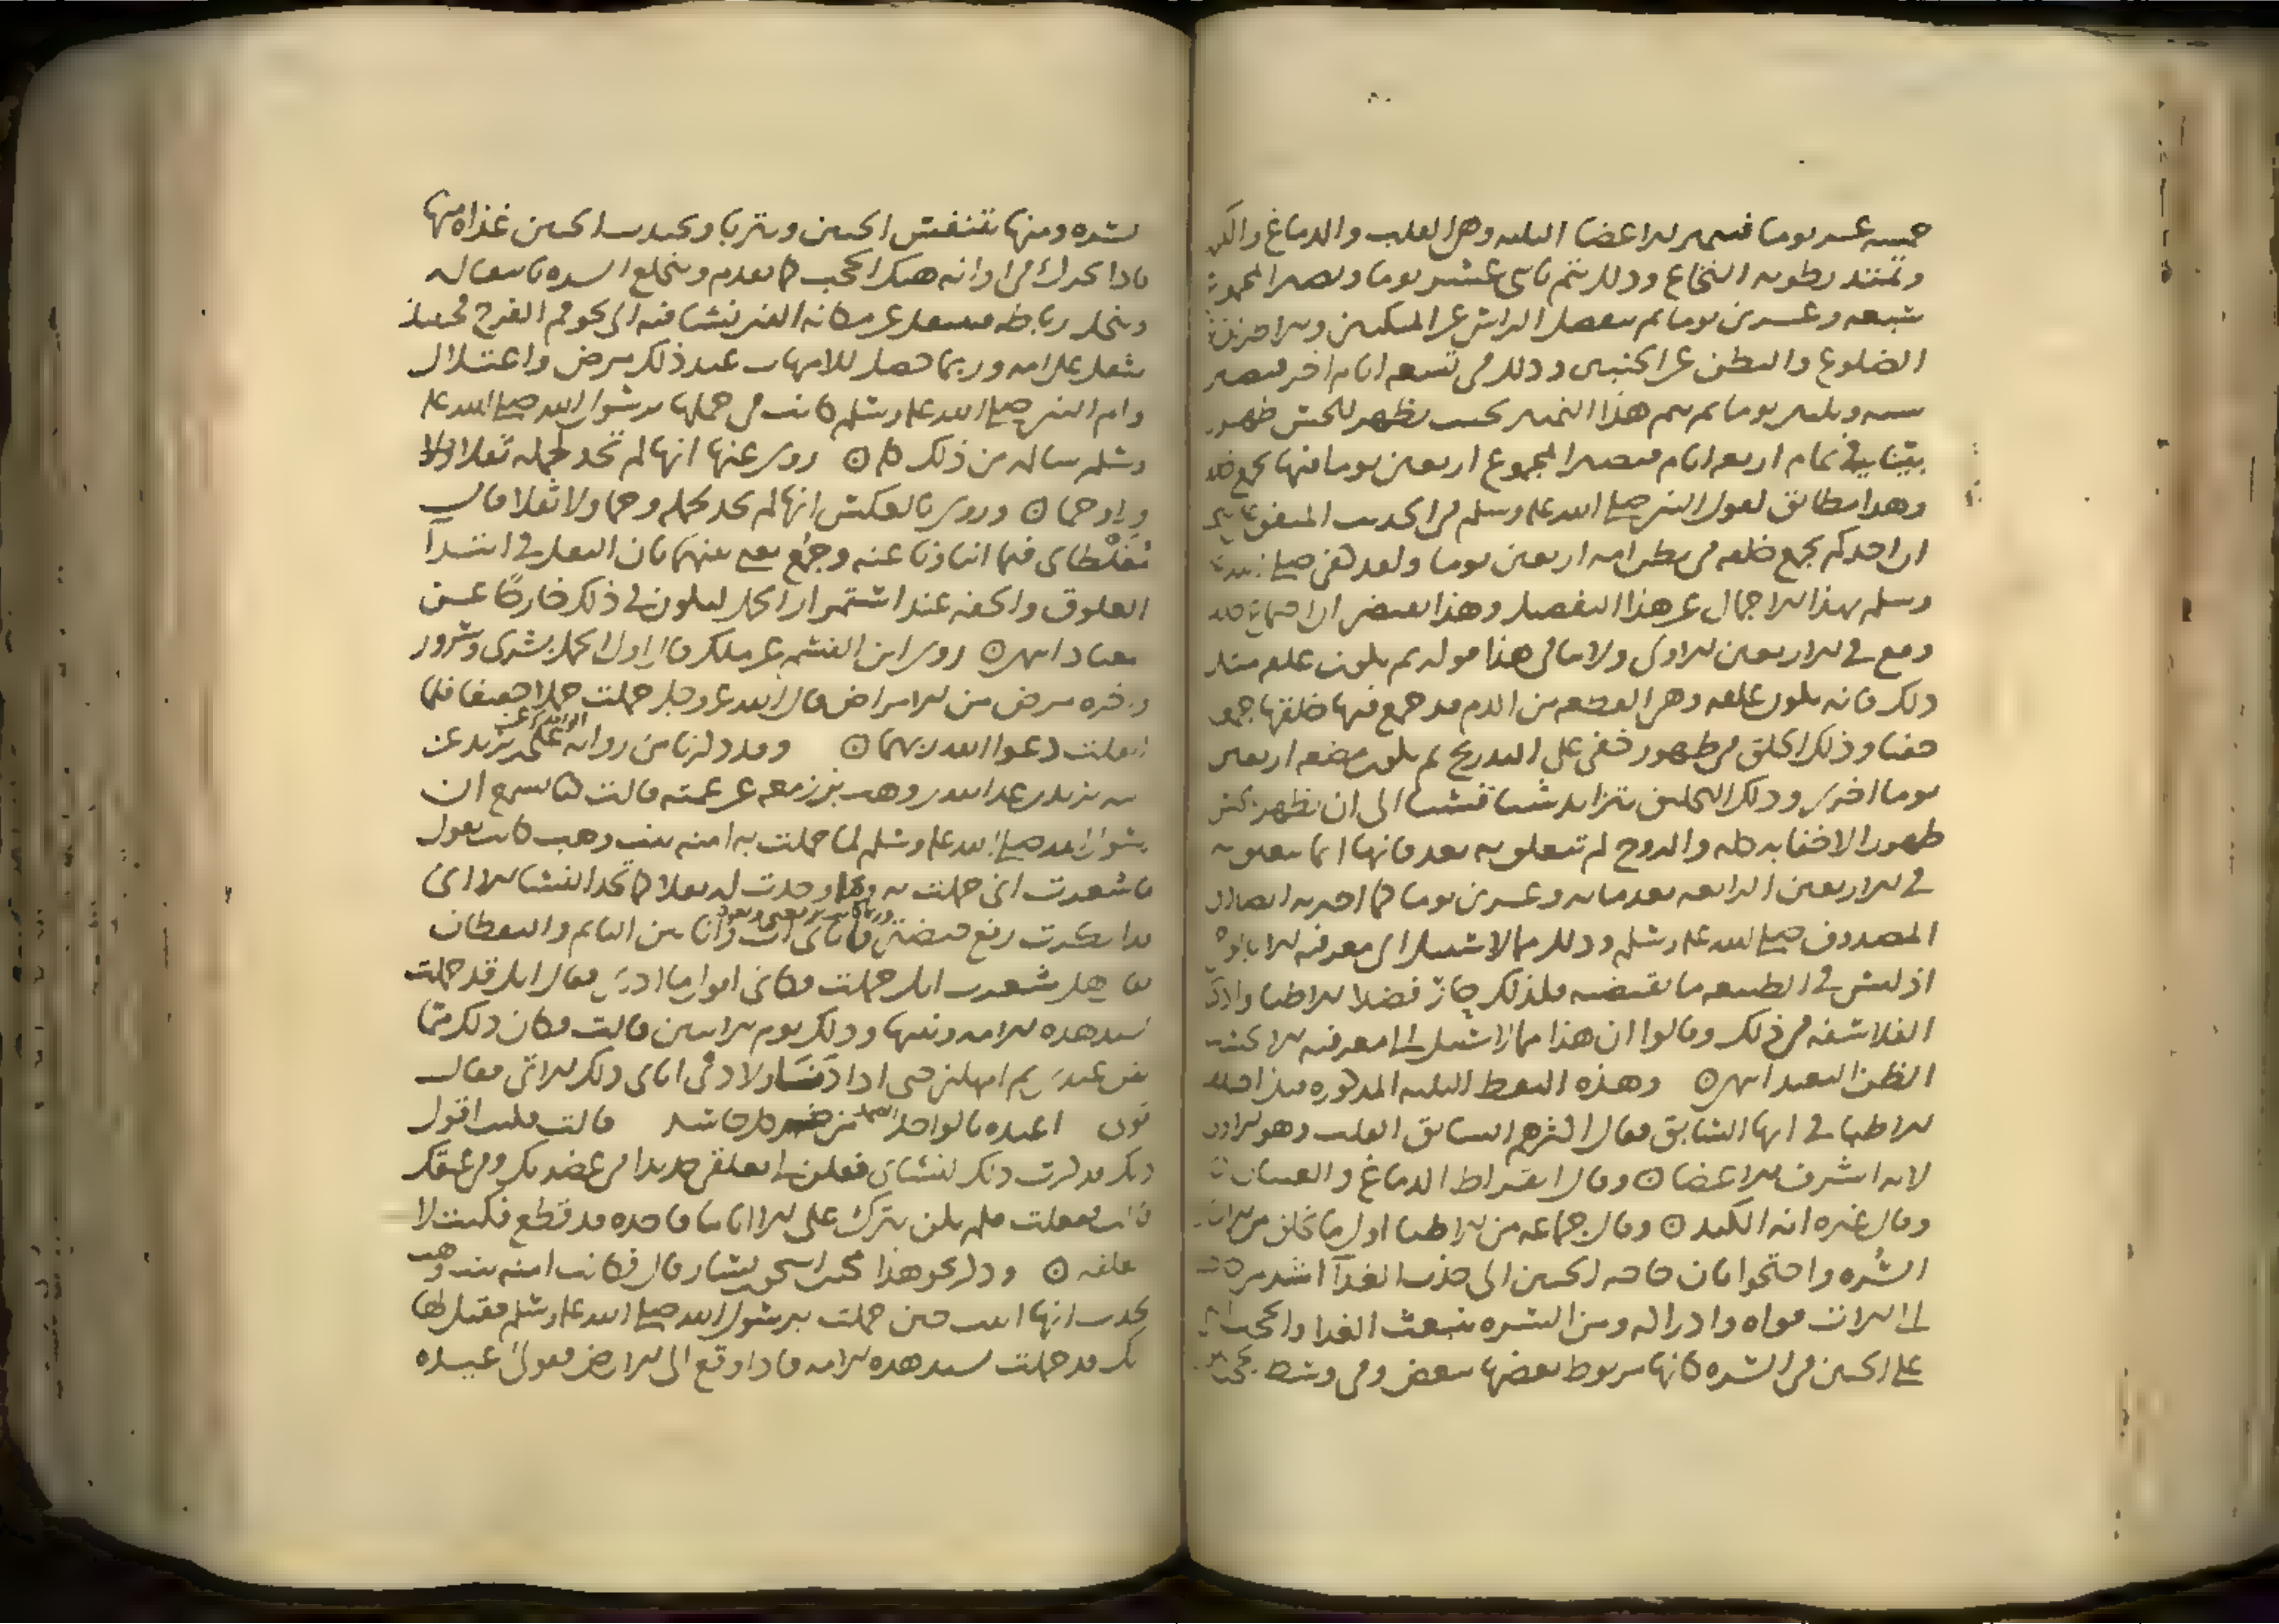 خمسه عشر يوما فتتميز الاعضا الثلثه وهي القلب والدماغ والكبد
وتمتد رطوبه النخاع وذلك يتم باثني عشر يوما ويصير المجموع
سبعه وعشرين يوما ثم ينفصل الراس عن المنكبين والاطراف عن
الضلوع والبطن عن الجنبين وذلك في تسعه ايام اخر فيصير
سته وثلثين يوما ثم يتم هذا التميز بحيث يظهر للحس ظهورا
بينا في تمام اربعه ايام فيصير المجموع اربعين يوما فيها يجمع خلقه
وهذا مطابق لقول النبي صلى الله عليه وسلم في الحديث المتفق على
ان احدكم يجمع خلقه في بطن امه اربعين يوما ولقد كفى صلى الله عليه
وسلم بهذا الاجمال عن هذا التفصيل وهذا يقتضي ان اجتماع خلقه
وقع في الاربعين الاولى ولا ينافي هذا قوله ثم يكون علقه مثل
ذلك فانه يكون علقه وهي القطعه من الدم قد جمع فيها خلقها جمعا
خفيا وذلك الخلق في ظهور خفي على التدريج ثم يكون مضغه اربعين
يوما اخرى وذلك التخليق يتزايد شيا فشيا الى ان يظهر للحس
ظهورا لا خفا به كله والروح لم تتعلق به بعد فانها انما تتعلق به
في الاربعين الرابعه بعد مايه وعشرين يوما كما اخبر به الصادق
المصدوق صلى الله عليه وسلم وذلك مما لا سبيل الى معرفته الا بالوحي
اذ ليس في الطبيعه ما يقتضيه فلذلك حار فضلا الاطبا واذكيا
الفلاسفه في ذلك وقالوا ان هذا مما لا سبيل الى معرفته الا بحسب
الظن البعيد انتهى ⊙ وهذه النقط الثلثه المذكوره قد اختلف
الاطبا في ايها السابق فقال اكثرهم السابق القلب وهو الاول
لانه اشرف الاعضا ⊙ وقال ابقراط الدماغ والعينان
وقال غيره انه الكبد ⊙ وقال جماعه من الاطبا اول ما يخلق من الانسان
السره واحتجوا بان حاجه الجنين الى جذب الغذا اشد من حاجته
الى الات قواه وادراكه ومن السره ينبعث الغذا والحجب التي
على الجنين في السره كانها مربوط بعضها ببعض وفي وسط الحجب
السره ومنها يتنفس الجنين ويتربا ويجتذب الجنين غذاه منها
فاذا تحرك في اوانه هتك الحجب كما تقدم وينخلع السره بانتقاله
وينحل رباطه فينتقل عن مكانه الذي نشا فيه الى نحو فم الفرج فحينئذ
يثقل على امه وربما حصل للامهات عند ذلك مرض واعتلال
وام النبي صلى الله عليه وسلم كانت في حملها برسول الله صلى الله عليه
وسلم سالمه من ذلك كله ⊙ روي عنها انها لم تجد لحمله ثقلا ولا
ولا وحما ⊙ وروي بالعكس انها لم تجد لحمله وحما ولا ثقلا قال
مغلطاي فيما انبانا عنه وجمع بعض بينهما بان الثقل في ابتدا
العلوق والخفه عند استمرار الحمل ليكون في ذلك خارجا عن
المعتاد انتهى ⊙ روى ابن القسم عن ملك قال اول الحمل بشرى وسرور
واخره مرض من الامراض قال الله عز وجل حملت حملا خفيفا فلما
اثقلت دعوا الله ربهما ⊙ وقد ذكرنا من روايه علي بن يزيد عن
ابيه يزيد بن عبد الله بن وهب بن زمعه عن عمته قالت كنا نسمع ان
رسول الله صلى الله عليه وسلم لما حملت به امنه بنت وهب كانت تقول
ما شعرت اني حملت به ولا وجدت له ثقلا كما تجد النسا الا اني
قد انكرت رفع حيضتي واتاني ات وانا بين النايم واليقظان
فقال هل شعرت انك حملت فكاني اقول ما ادري فقال انك قد حملت
بسيد هذه الامه ونبيها وذلك يوم الاثنين قالت فكان ذلك مما
يقن عندي ثم امهلني حتى اذا دنت ولادتي اتاني ذلك الاتي فقال
قولي اعيذه بالواحد الصمد من شر كل حاسد قالت فكنت اقول
ذلك فذكرت ذلك لنساي فقلن لي تعلقي حديدا في عضديك وفي عنقك
قالت ففعلت فلم يكن يترك علي الا اياما فاجده قد قطع فكنت لا
اتعلقه ⊙ وذكر نحو هذا محمد بن اسحق بن يسار قال فكانت امنه بنت وهب
تحدث انها اتيت حين حملت برسول الله صلى الله عليه وسلم فقيل لها
انك قد حملت بسيد هذه الامه فاذا وقع الى الارض فقولي اعيذه